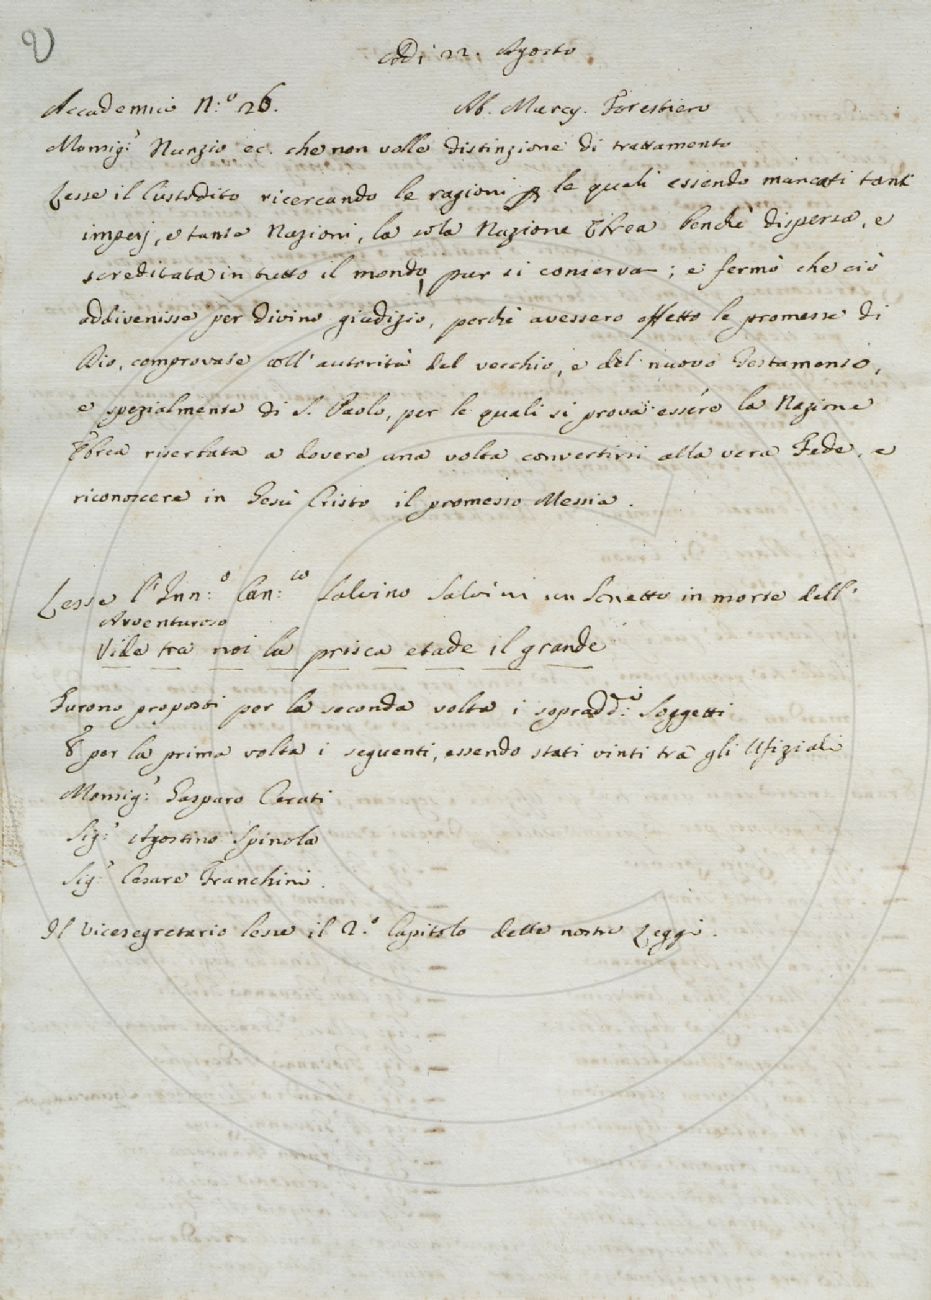 Adì 22. Agosto
Accademici N.o 26. Ab. Marcy. Forestiero
Monsig.r Nunzio ec. che non volle distinzione di trattamento
Lesse il Custodito ricercando le ragioni p le quali essendo mancati tanti
imperj, e tante Nazioni, la sola Nazione Ebrea benchè dispersa, e
screditata in tutto il mondo, pur si conserva; e fermò che ciò
addivenisse per divino giudizio, perchè avessero effetto le promesse di
Dio, comprovate coll' autorità del vecchio, e del nuovo Testamento,
e spezialmente di S. Paolo, per le quali si prova essere la Nazione
Ebrea riserbata a dovere una volta convertirsi alla vera Fede, e
riconoscere in Gesù Cristo il promesso Messia.
Lesse l' Inn:o Can:co Salvino Salvini un Sonetto in morte dell'
Avventuroso
Vide tra noi la prisca etade il grande
Furono proposti per la seconda volta i sopradd:i Soggetti
E per la prima volta i seguenti, essendo stati vinti tra gli Ufiziali
Monsig.r Gasparo Cerati
Sig.r Agostino Spinola
Sig.r Cesare Franchini.
Il Vicesegretario lesse il 2.o Capitolo delle nostre Leggi.